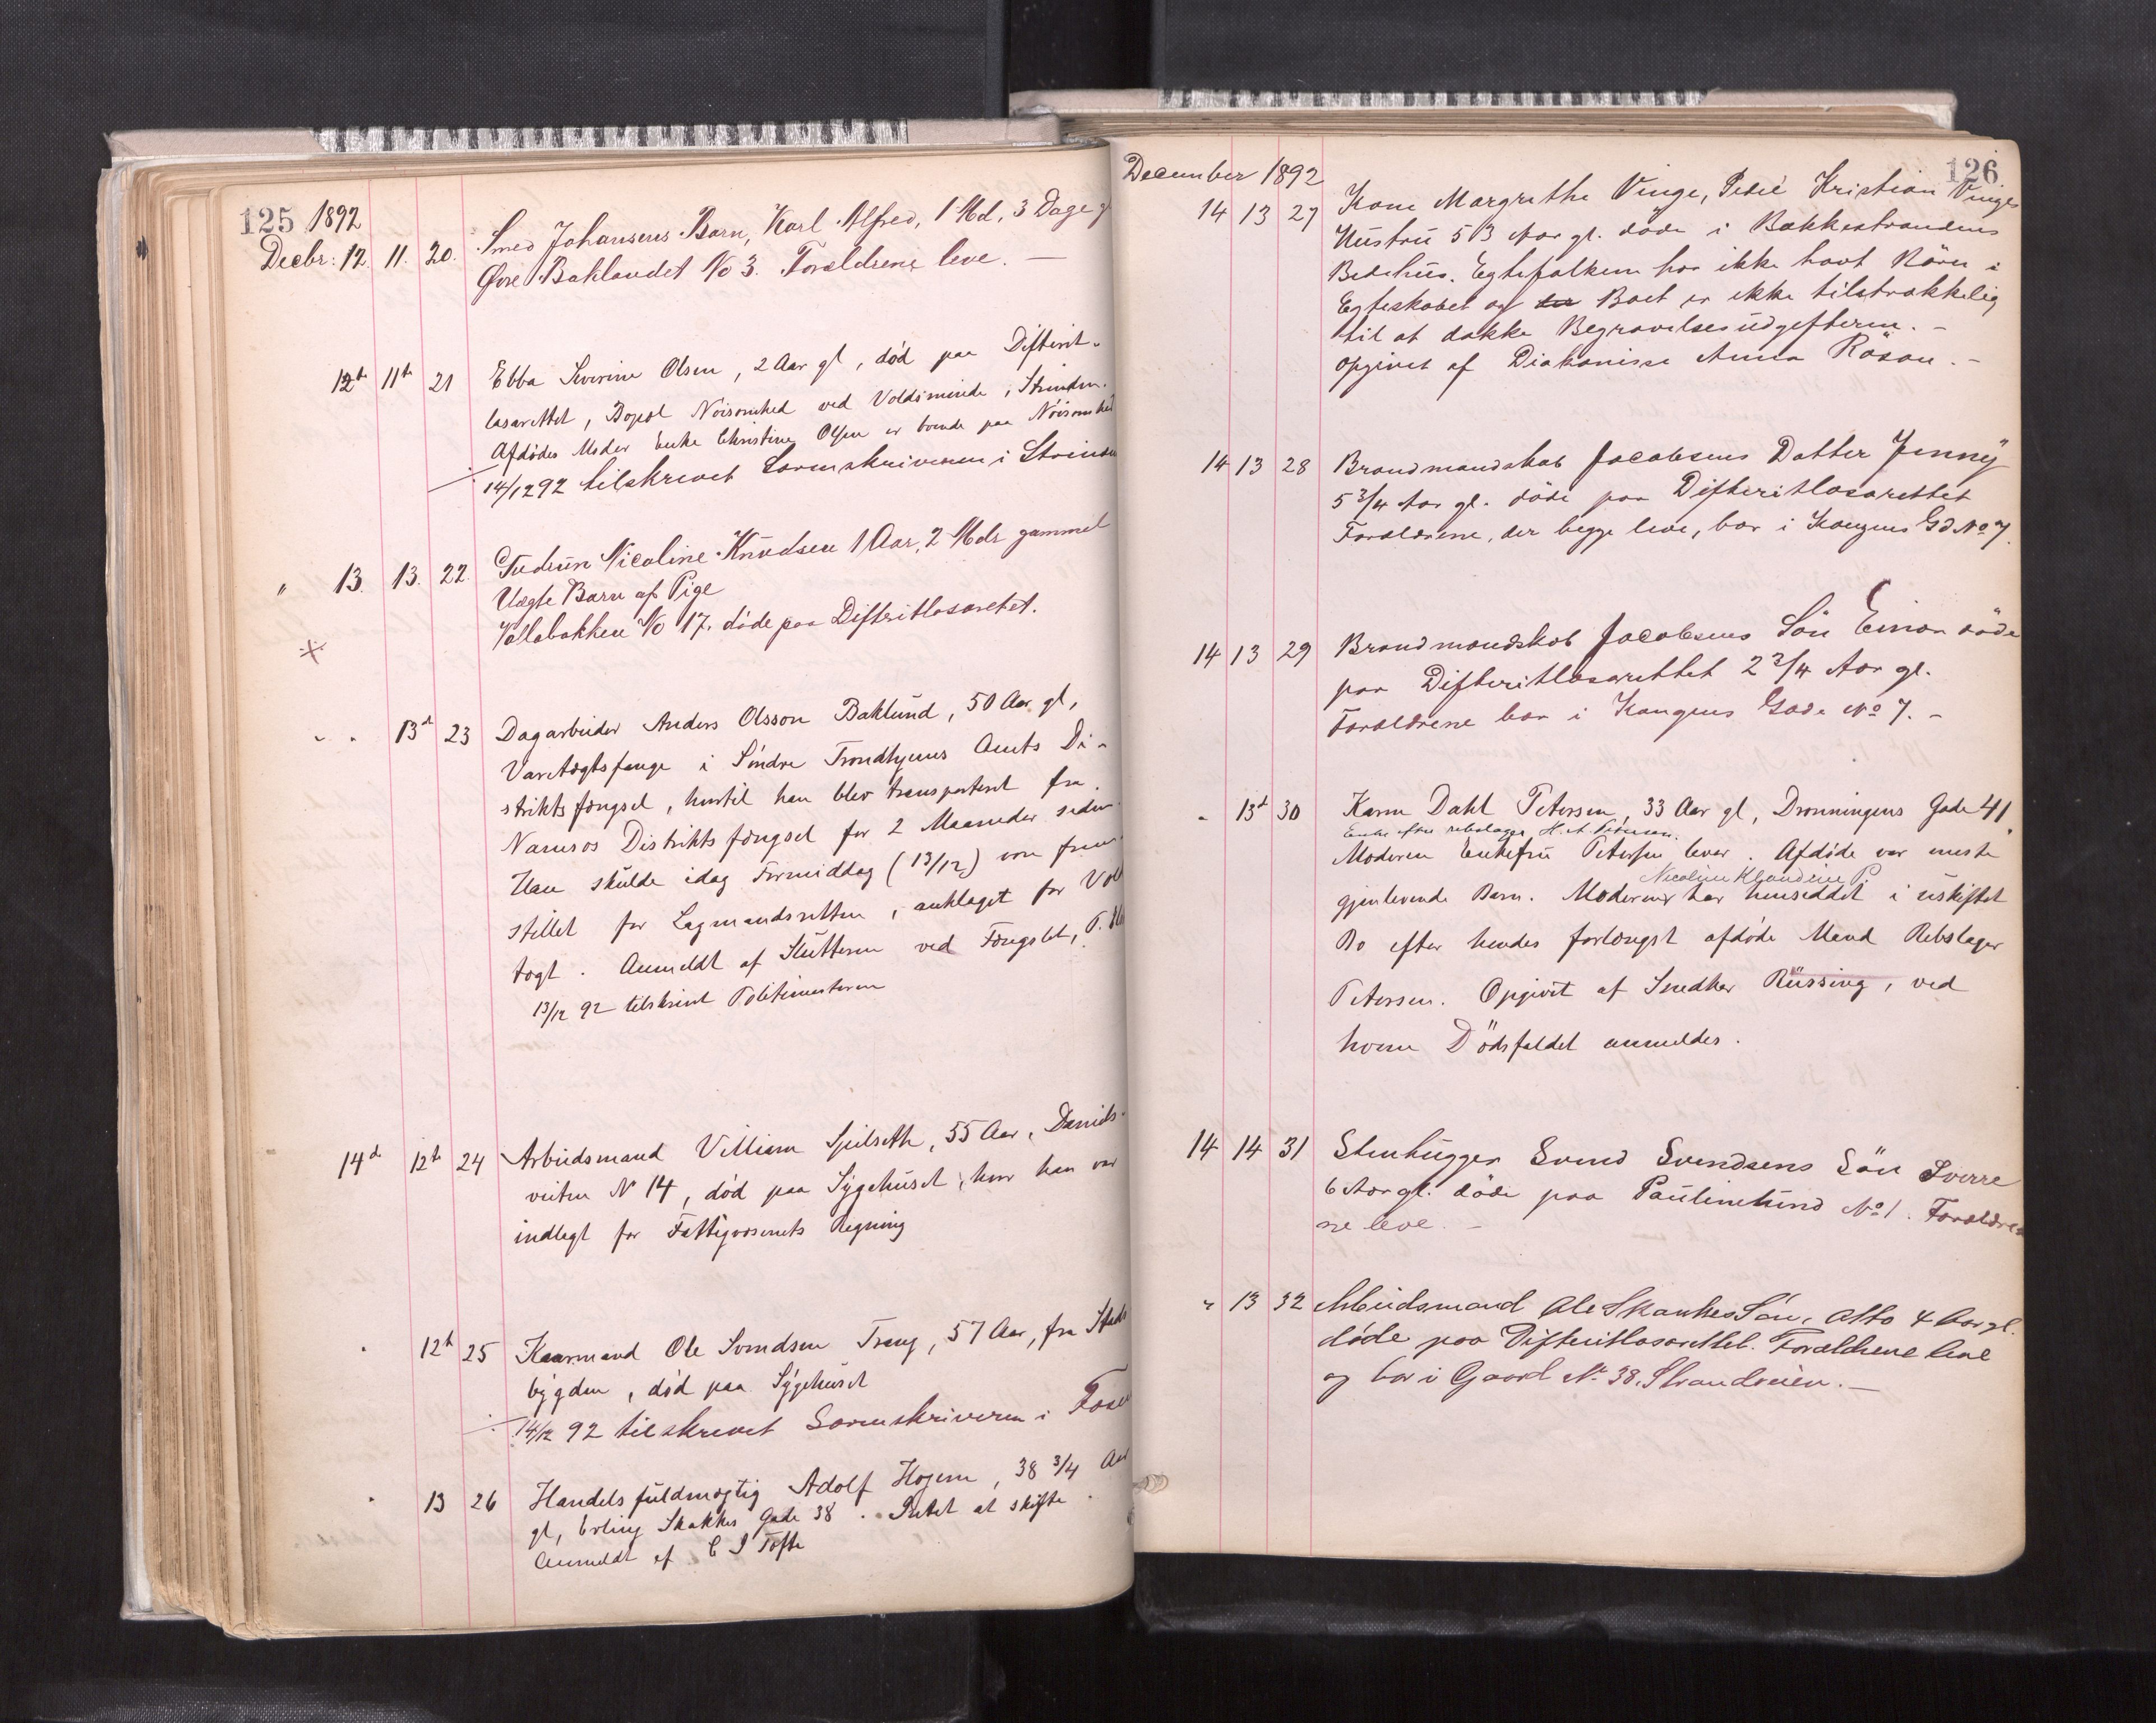 125 1892
Decbr: 12. 11. 20. Smed Johansens Barn, Karl Alfred, 1 Md, 3 Dage
Øvre Baklandet No 3. Forældrene leve. —
12te 11te 21 Ebba Severine Olsen, 2 Aar gl, død paa Difterit-
lasarettet, Bopæl Nöisomhed ved Voldsminde i Strinden.
Afdødes Moder Enke Christine Olsen er boende paa Nöisomhed
14/12 92 tilskrevet Sorenskriveren i Strinden
" 13. 13. 22. Gudrun Nicoline Knudsen 1 Aar, 2 Mdr gammel
Uægte Barn af Pige
Vollabakken No 17. døde paa Difteritlasaretet.
13d 23 Dagarbeider Anders Olsson Baklund, 50 Aar gl,
Varetægtsfange i Söndre Trondhjems Amts Di-
strikts fængsel, hvortil han blev transporteret fra
Namsos Distrikts fængsel for 2 Maaneder siden.
Han skulde idag Formiddag (13/12) være frem-
stillet for Lagmandsretten, anklaget for Vold
tægt. Anmeldt af Slutteren ved Fængslet,
13/12 92 tilskrevet Politimesteren
14d 12te 24 Arbeidsmand Villiam Sjulseth, 55 Aar, Davids-
veiten N 14, død paa Sygehuset, hvor han var
indlagt for Fattigvæsenets Regning
12te 25 Kaarmand Ole Svendsen Trang, 57 Aar, fra Stads
bygden, død paa Sygehuset
14/12 92 tilskrevet Sorenskriveren i Fosen
13 26 Handelsfuldmægtig Adolf Hogem, 38 3/4 Aar
gl, Erling Skakkes Gade 38. Intet at skifte.
Anmeldt af C J Tofte
December 1892 126
14 13 27 Kone Margrethe Vinge, Kristian Vinges
Hustru 53 Aar gl. døde i Bakkestrandens
Bedehus. Egtefolkene har ikke havt Börn i
Egteskabet og Boet er ikke tilstrækkelig
til at dække Begravelsesudgifterne. —
Opgivet af Diakonisse Anna Röaan. —
14 13 28 Brandmandskab Jacobsens Datter Jenny
5 3/4 Aar gl. döde paa Difteritlasarettet
Forældrene, der begge leve, bor i Kongens Gd No 7.
14 13 29 Brandmandskab Jacobsens Sön Einar döde
paa Difteritlasarettet 2 3/4 Aar gl.
Forældrene bor i Kongens Gade No 7. —
13d 30 Karen Dahl Petersen, 33 Aar gl, Dronningens Gade 41.
Enke efter rebslager H. A. Petersen.
Moderen Enkefru Petersen lever. Afdöde var eneste
Nicoline Klaudine P.
gjenlevende Barn. Moderen har henseddet i uskiftet
Bo efter hendes forlængst afdöde Mand Rebslager
Petersen. Opgivet af Snedker Rüssing, ved
hvem Dödsfaldet anmeldes.
14 14 31 Stenhugger Svend Svendsens Sön Sverre
6 Aar gl. döde paa Paulinelund No 1. Forældre
ne leve. —
" 13 32 Arbeidsmand Ole Skankes Søn, Otto 4 Aar gl.
døde paa Difteritlasarettet. Forældrene leve
og bor i Gaard No 38. Strandveien. —